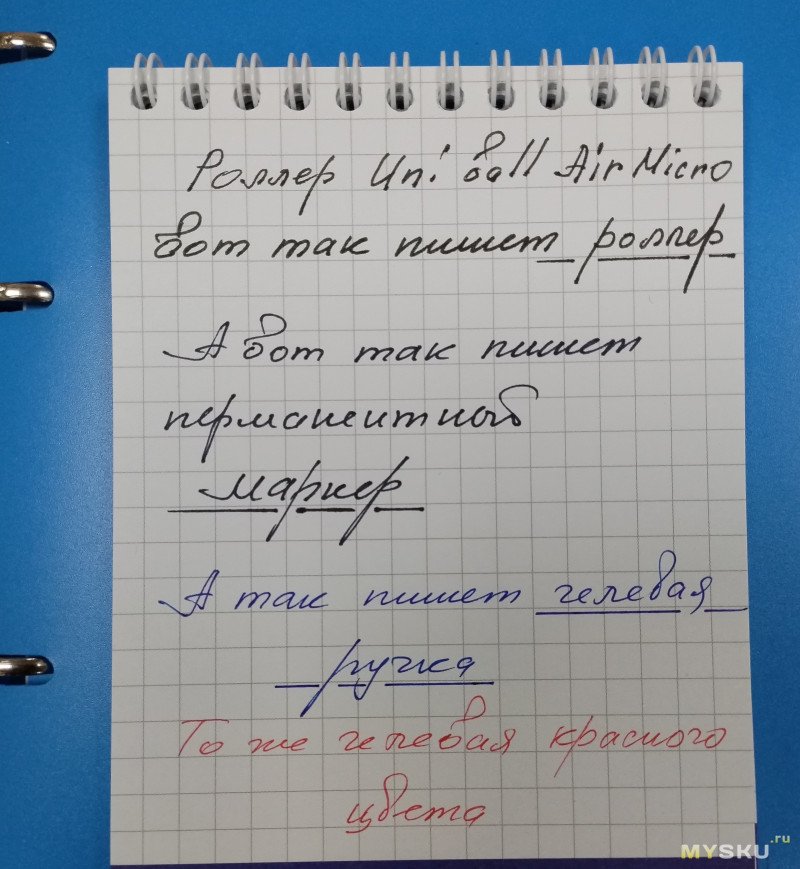 Роллер Uni ball Air Micro
вот так пишет роллер
А вот так пишет
перманентный
маркер
А так пишет гелевая
ручка
То же гелевая красного
цвета
MYSKU.ru